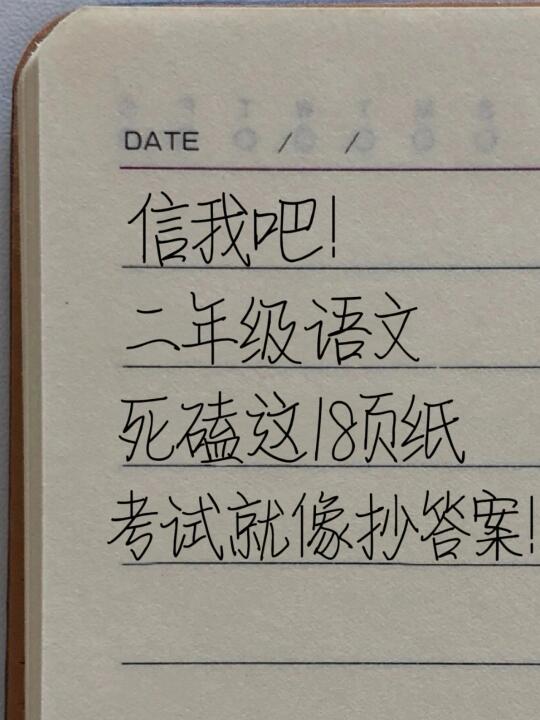 DATE / /
信我吧!
二年级语文
死磕这18页纸
考试就像抄答案!